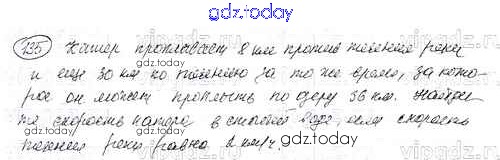 gdz.today
235 Катер проплывает 8 км против течения реки
и еще 30 км по течению за то же время, за кото-
рое он может проплыть по озеру 36 км. Найди-
те скорость катера в стоячей воде, если скорость
течения реки равна 2 км/ч.
gdz.today